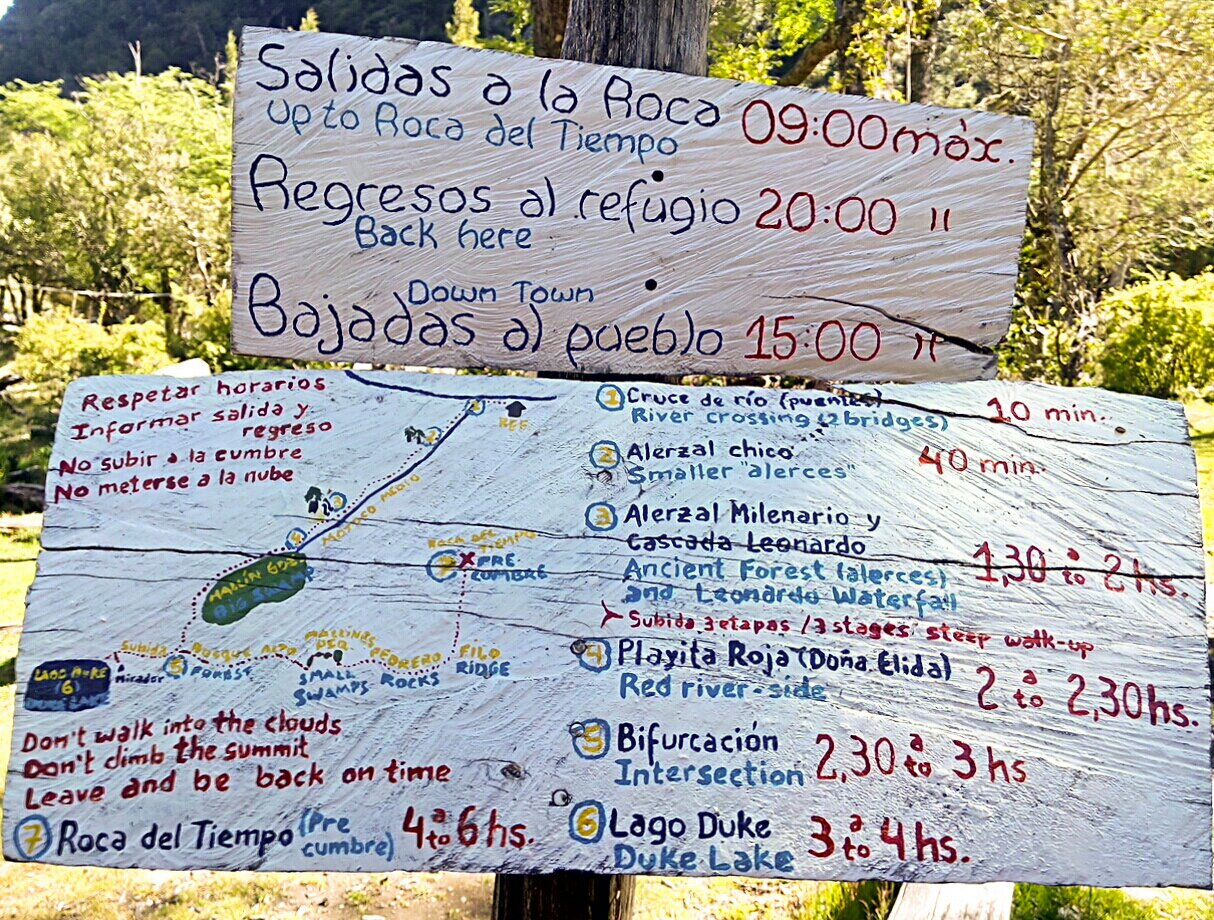 Salidas a la Roca 09:00 máx.
Up to Roca del Tiempo
Regresos al refugio 20:00 "
Back here
Down Town
Bajadas al pueblo 15:00 "
Respetar horarios
Informar salida y
regreso
No subir a la cumbre
No meterse a la nube
REF
MOROCO MEDIO
MALLÍN
BIG SWAMP
ROCA DEL TIEMPO
7 X PRE
CUMBRE
Subida
BOSQUE ALTO
MALLINES
PEDRERO
FILO
RIDGE
mirador 5 FOREST
SMALL
SWAMPS
ROCKS
LAGO DUKE
(6)
DUKE LAKE
Don't walk into the clouds
Don't climb the summit
Leave and be back on time
7 Roca del Tiempo (Pre cumbre) 4 a to 6 hs.
1 Cruce de río (puentes) 10 min.
River crossing (2 bridges)
2 Alerzal chico 40 min.
Smaller "alerces"
3 Alerzal Milenario y
Cascada Leonardo
Ancient Forest (alerces) 1,30 a to 2 hs.
and Leonardo Waterfall
Subida 3 etapas / 3 stages: steep walk-up
4 Playita Roja (Doña Elida)
Red river-side 2 a to 2,30 hs.
5 Bifurcación 2,30 a to 3 hs
Intersection
6 Lago Duke 3 a to 4 hs.
Duke Lake